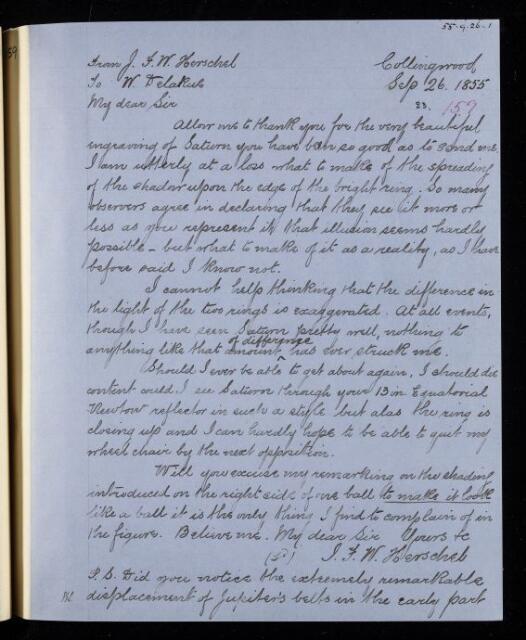 55-9.26-1
59
From J. F. W. Herschel Collingwood
To W Delarue Sep 26. 1855
My dear Sir 33. 159
Allow me to thank you for the very beautiful
engraving of Saturn you have been so good as to send me.
I am utterly at a loss what to make of the spreading
of the shadow upon the edge of the bright ring. So many
observers agree in declaring that they see it more or
less as you represent it, that illusion seems hardly
possible - but what to make of it as a reality, as I have
before said I know not.
I cannot help thinking that the difference in
the light of the two rings is exaggerated. At all events,
though I have seen Saturn pretty well, nothing to
of difference
anything like that amount, has ever struck me.
Should I ever be able to get about again, I should die
content could I see Saturn through your 13 in Equatorial
Newton reflector in such a style but alas the ring is
closing up and I can hardly hope to be able to quit my
wheel chair by the next opposition.
Will you excuse my remarking on the shading
introduced on the right side of one ball to make it look
like a ball it is the only thing I find to complain of in
the figure. Believe me. My dear Sir Yours &c
J. F. W. Herschel
P.S. Did you notice the extremely remarkable
displacement of Jupiter's belts in the early part